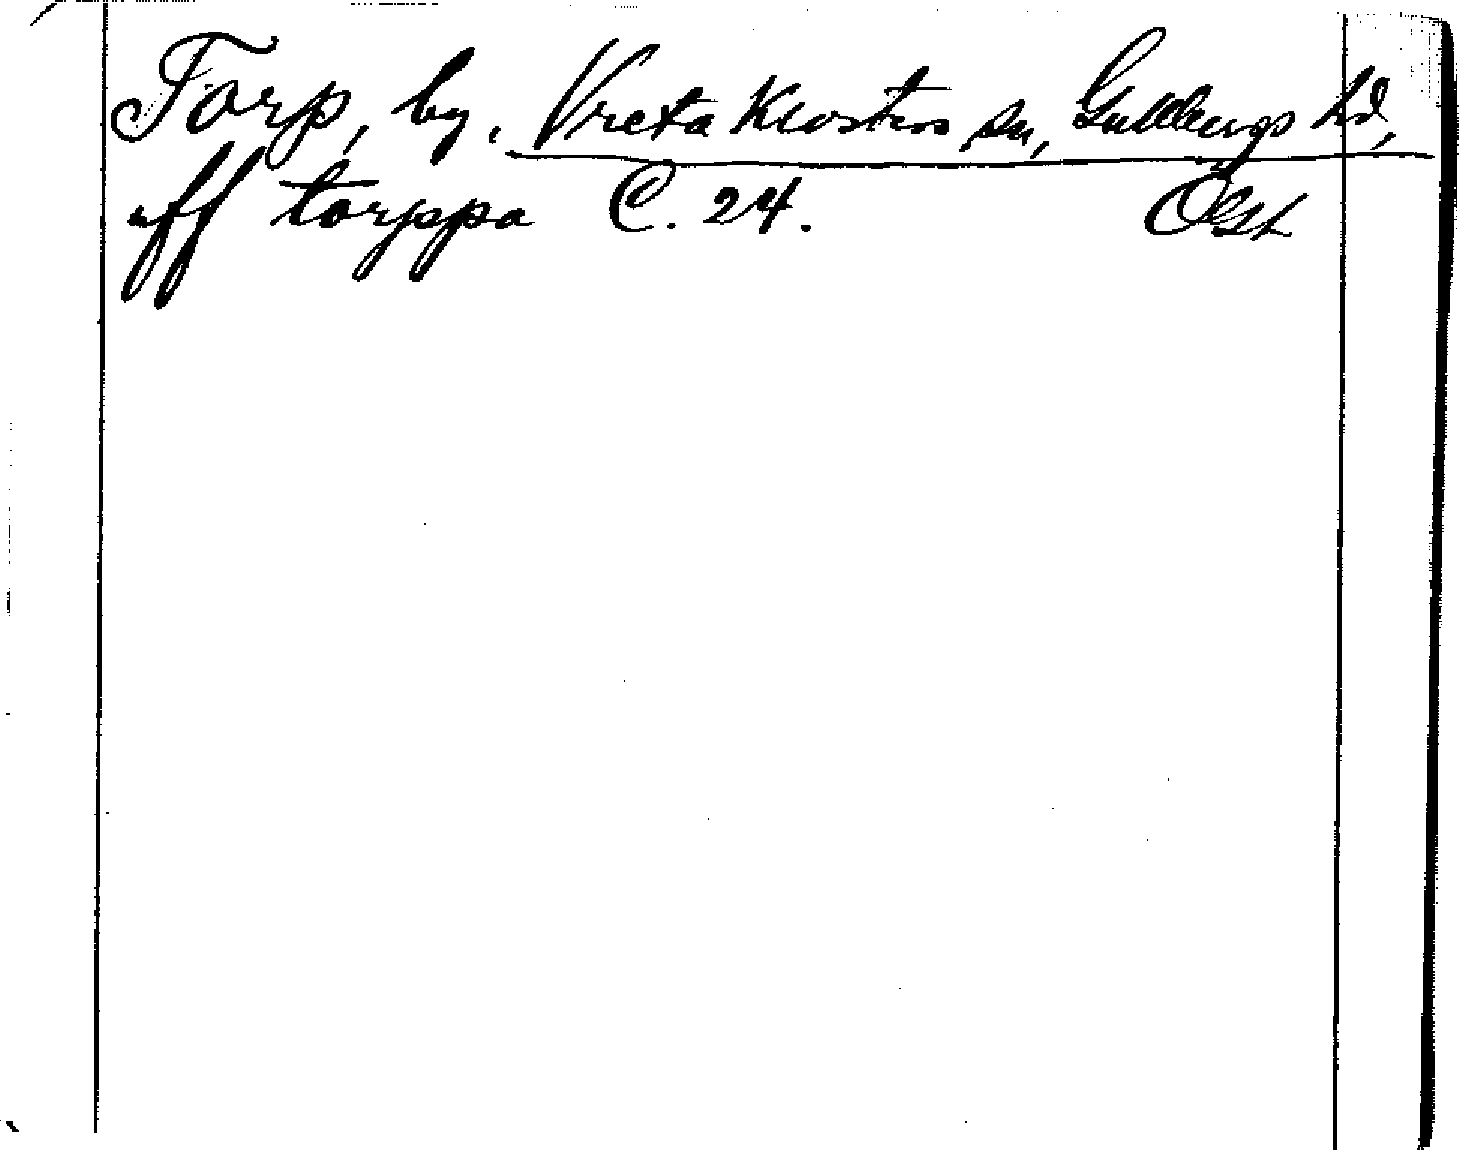 Torp, by. Vreta Klosters sn, Gullbergs hd,
uff torppa C. 24. Ögl